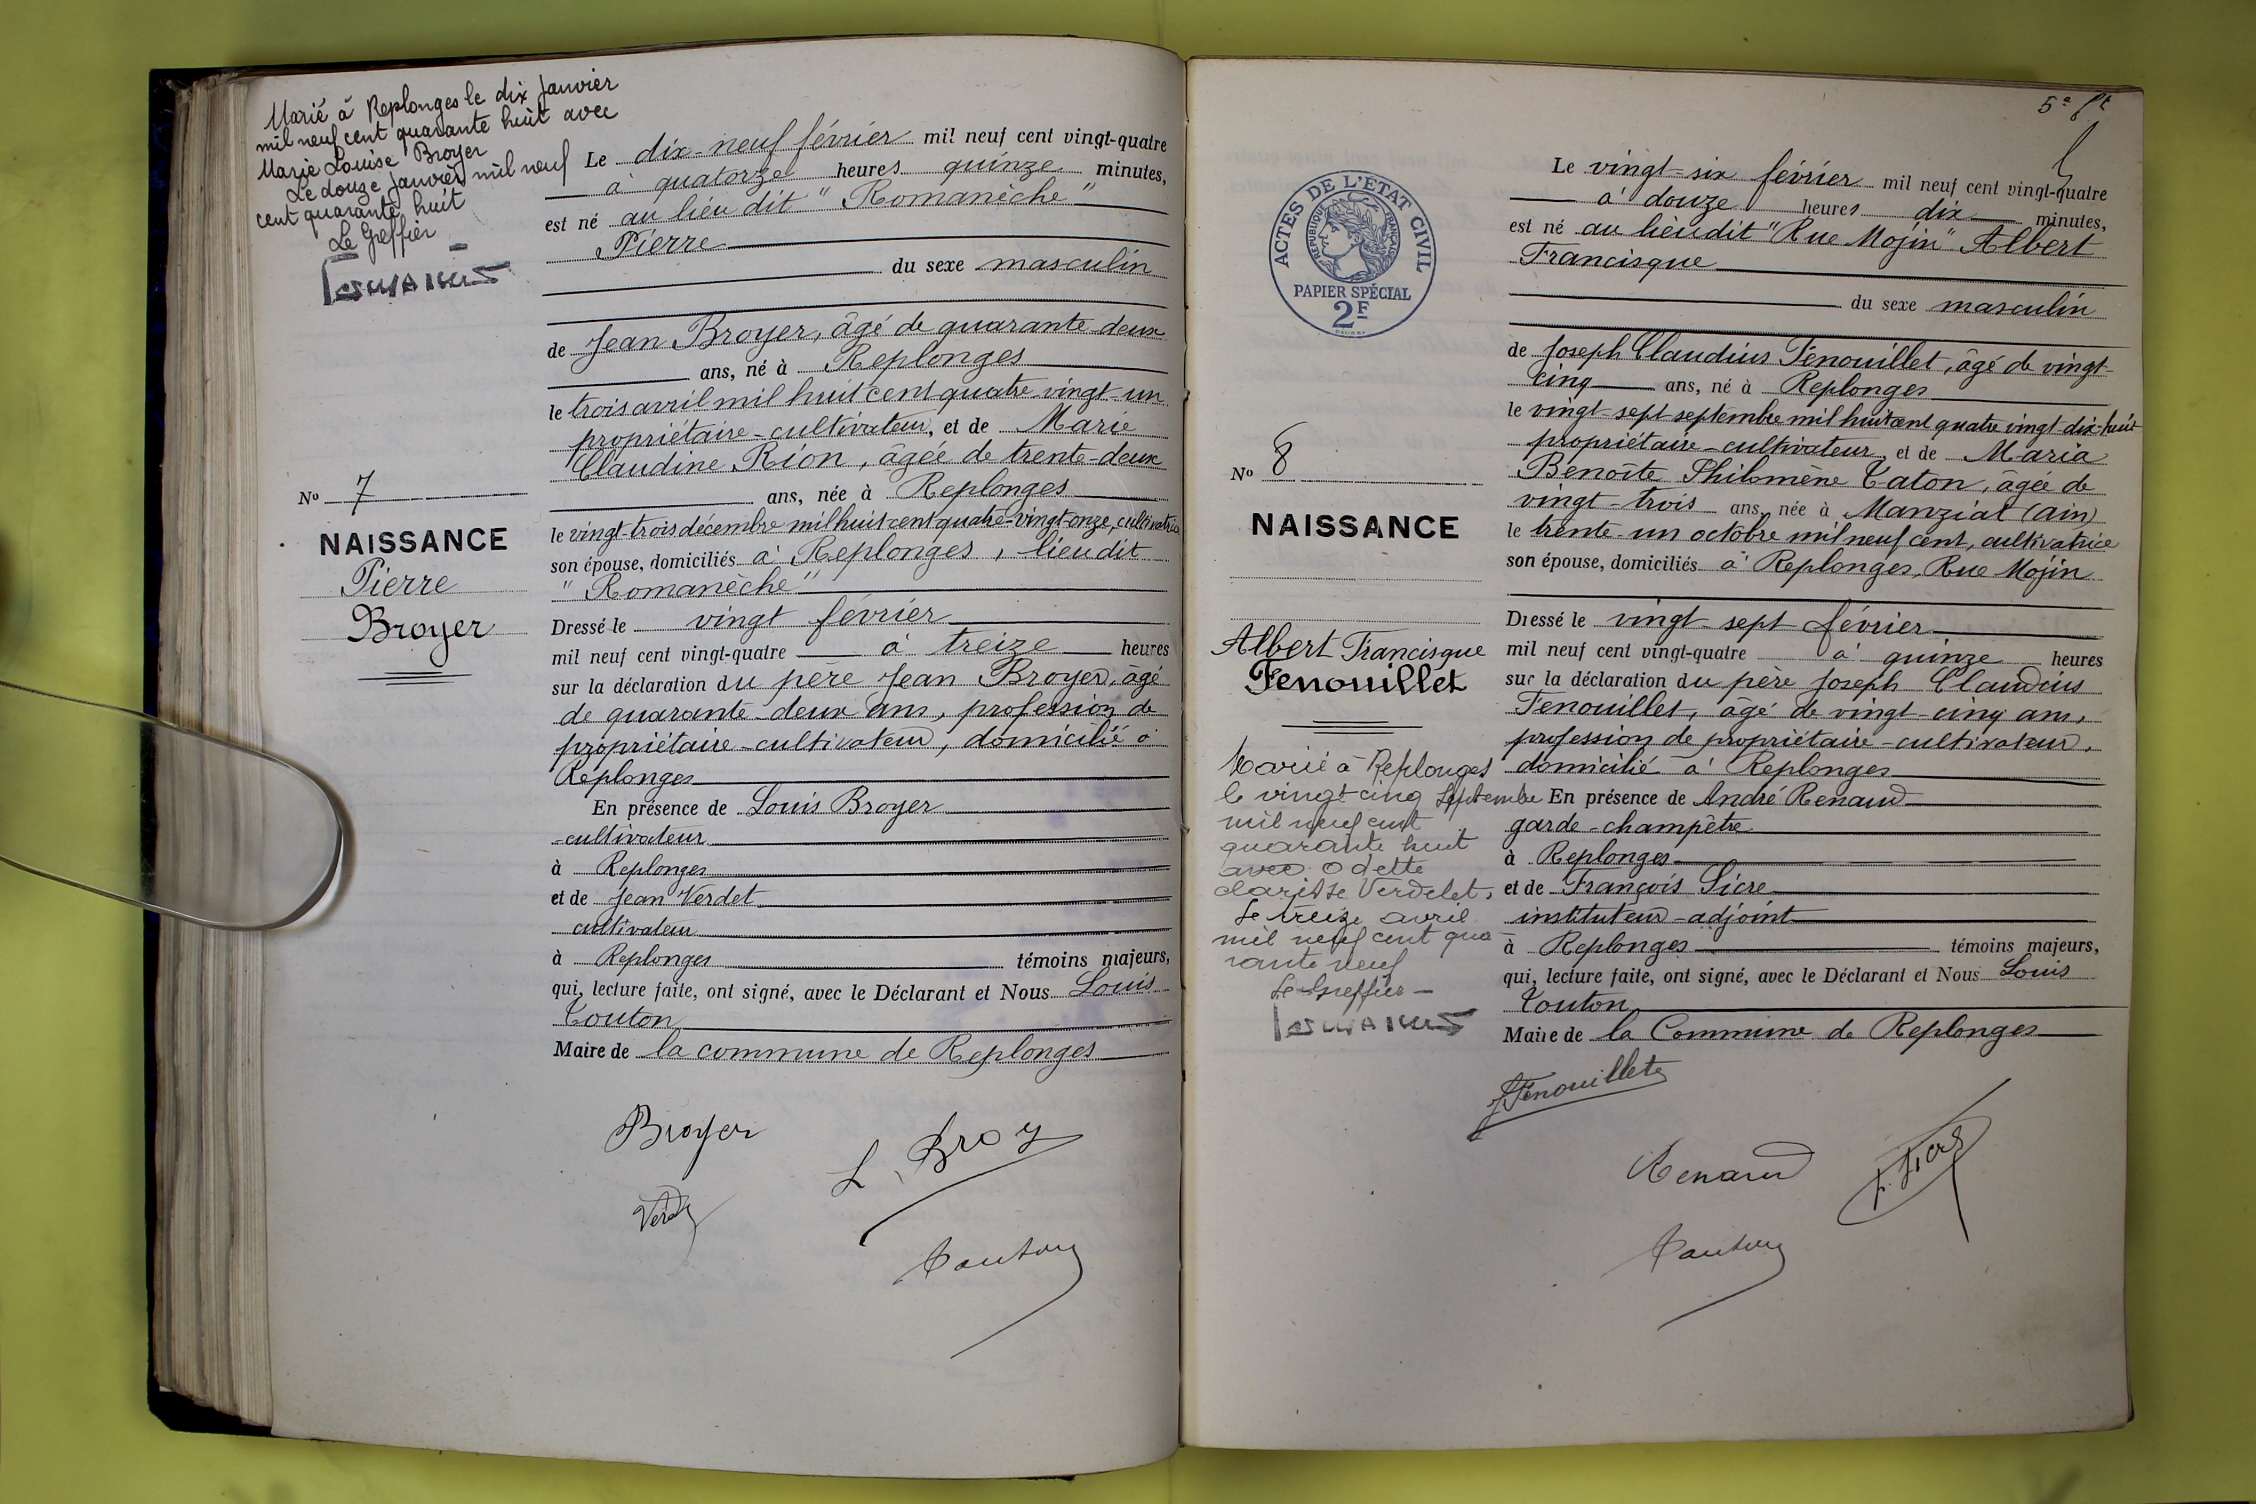 Marié à Replonges le dix Janvier
mil neuf cent quarante huit avec
Marie Louise Broyer
Le douze Janvier mil neuf
cent quarante huit
Le Greffier
No 7
NAISSANCE
Pierre
Broyer
Le dix-neuf février mil neuf cent vingt-quatre
à quatorze heures quinze minutes,
est né au lieu dit "Romanèche"
Pierre
du sexe masculin
de Jean Broyer, âgé de quarante-deux
ans, né à Replonges
le trois avril mil huit cent quatre-vingt-un
propriétaire-cultivateur, et de Marie
Claudine Rion, âgée de trente-deux
ans, née à Replonges
le vingt-trois décembre mil huit cent quatre-vingt-onze, cultivatrice
son épouse, domiciliés à Replonges, lieu dit
"Romanèche"
Dressé le vingt février
mil neuf cent vingt-quatre à treize heures
sur la déclaration du père Jean Broyer, âgé
de quarante-deux ans, profession de
propriétaire-cultivateur, domicilié à
Replonges
En présence de Louis Broyer
-cultivateur
à Replonges
et de Jean Verdet
cultivateur
à Replonges témoins majeurs,
qui, lecture faite, ont signé, avec le Déclarant et Nous Louis
Touton
Maire de la commune de Replonges
Broyer
L. Broy
Touton
5e ft
ACTES DE L'ETAT CIVIL
REPUBLIQUE FRANÇAISE
PAPIER SPÉCIAL
2F
No 8
NAISSANCE
Albert Francisque
Fenouillet
Marié à Replonges
le vingt cinq Septembre
mil neuf cent
quarante huit
avec Odette
clarisse Verdelet.
Le treize avril
mil neuf cent qua-
rante neuf
Le Greffier
Le vingt-six février mil neuf cent vingt-quatre
à douze heures dix minutes,
est né au lieu dit "Rue Mojin" Albert
Francisque
du sexe masculin
de Joseph Claudius Fenouillet, âgé de vingt-
cinq ans, né à Replonges
le vingt-sept septembre mil huit cent quatre vingt-dix-huit
propriétaire-cultivateur, et de Maria
Benoîte Philomène Caton, âgée de
vingt-trois ans, née à Manziat (ain)
le trente-un octobre mil neuf cent, cultivatrice
son épouse, domiciliés à Replonges, Rue Mojin
Dressé le vingt-sept février
mil neuf cent vingt-quatre à quinze heures
sur la déclaration du père Joseph Claudius
Fenouillet, âgé de vingt-cinq ans,
profession de propriétaire-cultivateur,
domicilié à Replonges
En présence de André Renaud
garde-champêtre
à Replonges
et de François Sicre
instituteur-adjoint
à Replonges témoins majeurs,
qui, lecture faite, ont signé, avec le Déclarant et Nous Louis
Touton
Maire de la Commune de Replonges
J Fenouillet
Renaud
Touton